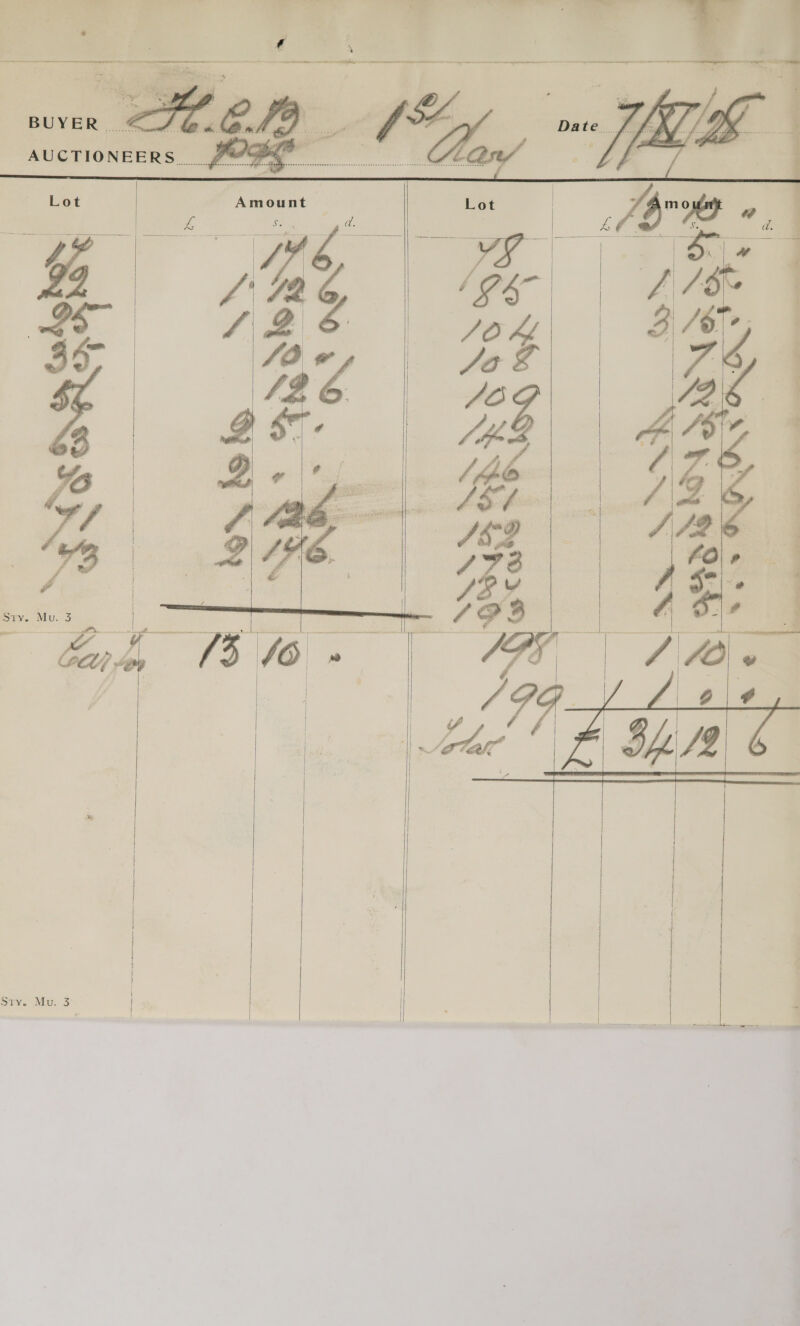 BUYER 1st Day Date 7/
AUCTIONEERS
Lot Amount Lot Amount
£ s. d. £ 13 10 s. d.
17 6 78 5 "
22 1 12 6 85 1 15 "
25 1 2 6 104 3 15 "
35 10 " 108 7 6
12 6 109 12 6
63 2 5 " 142 4 15 "
70 2 " " 146 1 7 6
71 1 12 6 151 1 2 6
73 2 17 6 152 1 12 6
173 10 "
180 1 5 "
Stv. Mu. 3 193 1 5 "
13 10 " 198 1 10 "
199 1 " "
Total £ 34 12 6
Stv. Mu. 3